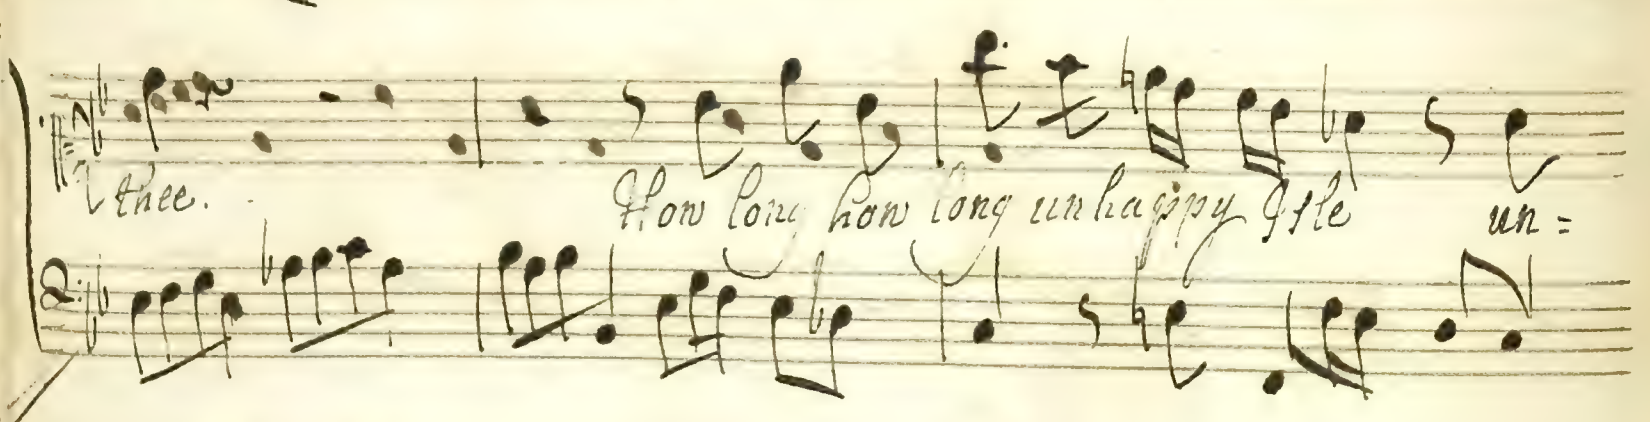 thee. How long how long unhappy Isle un=